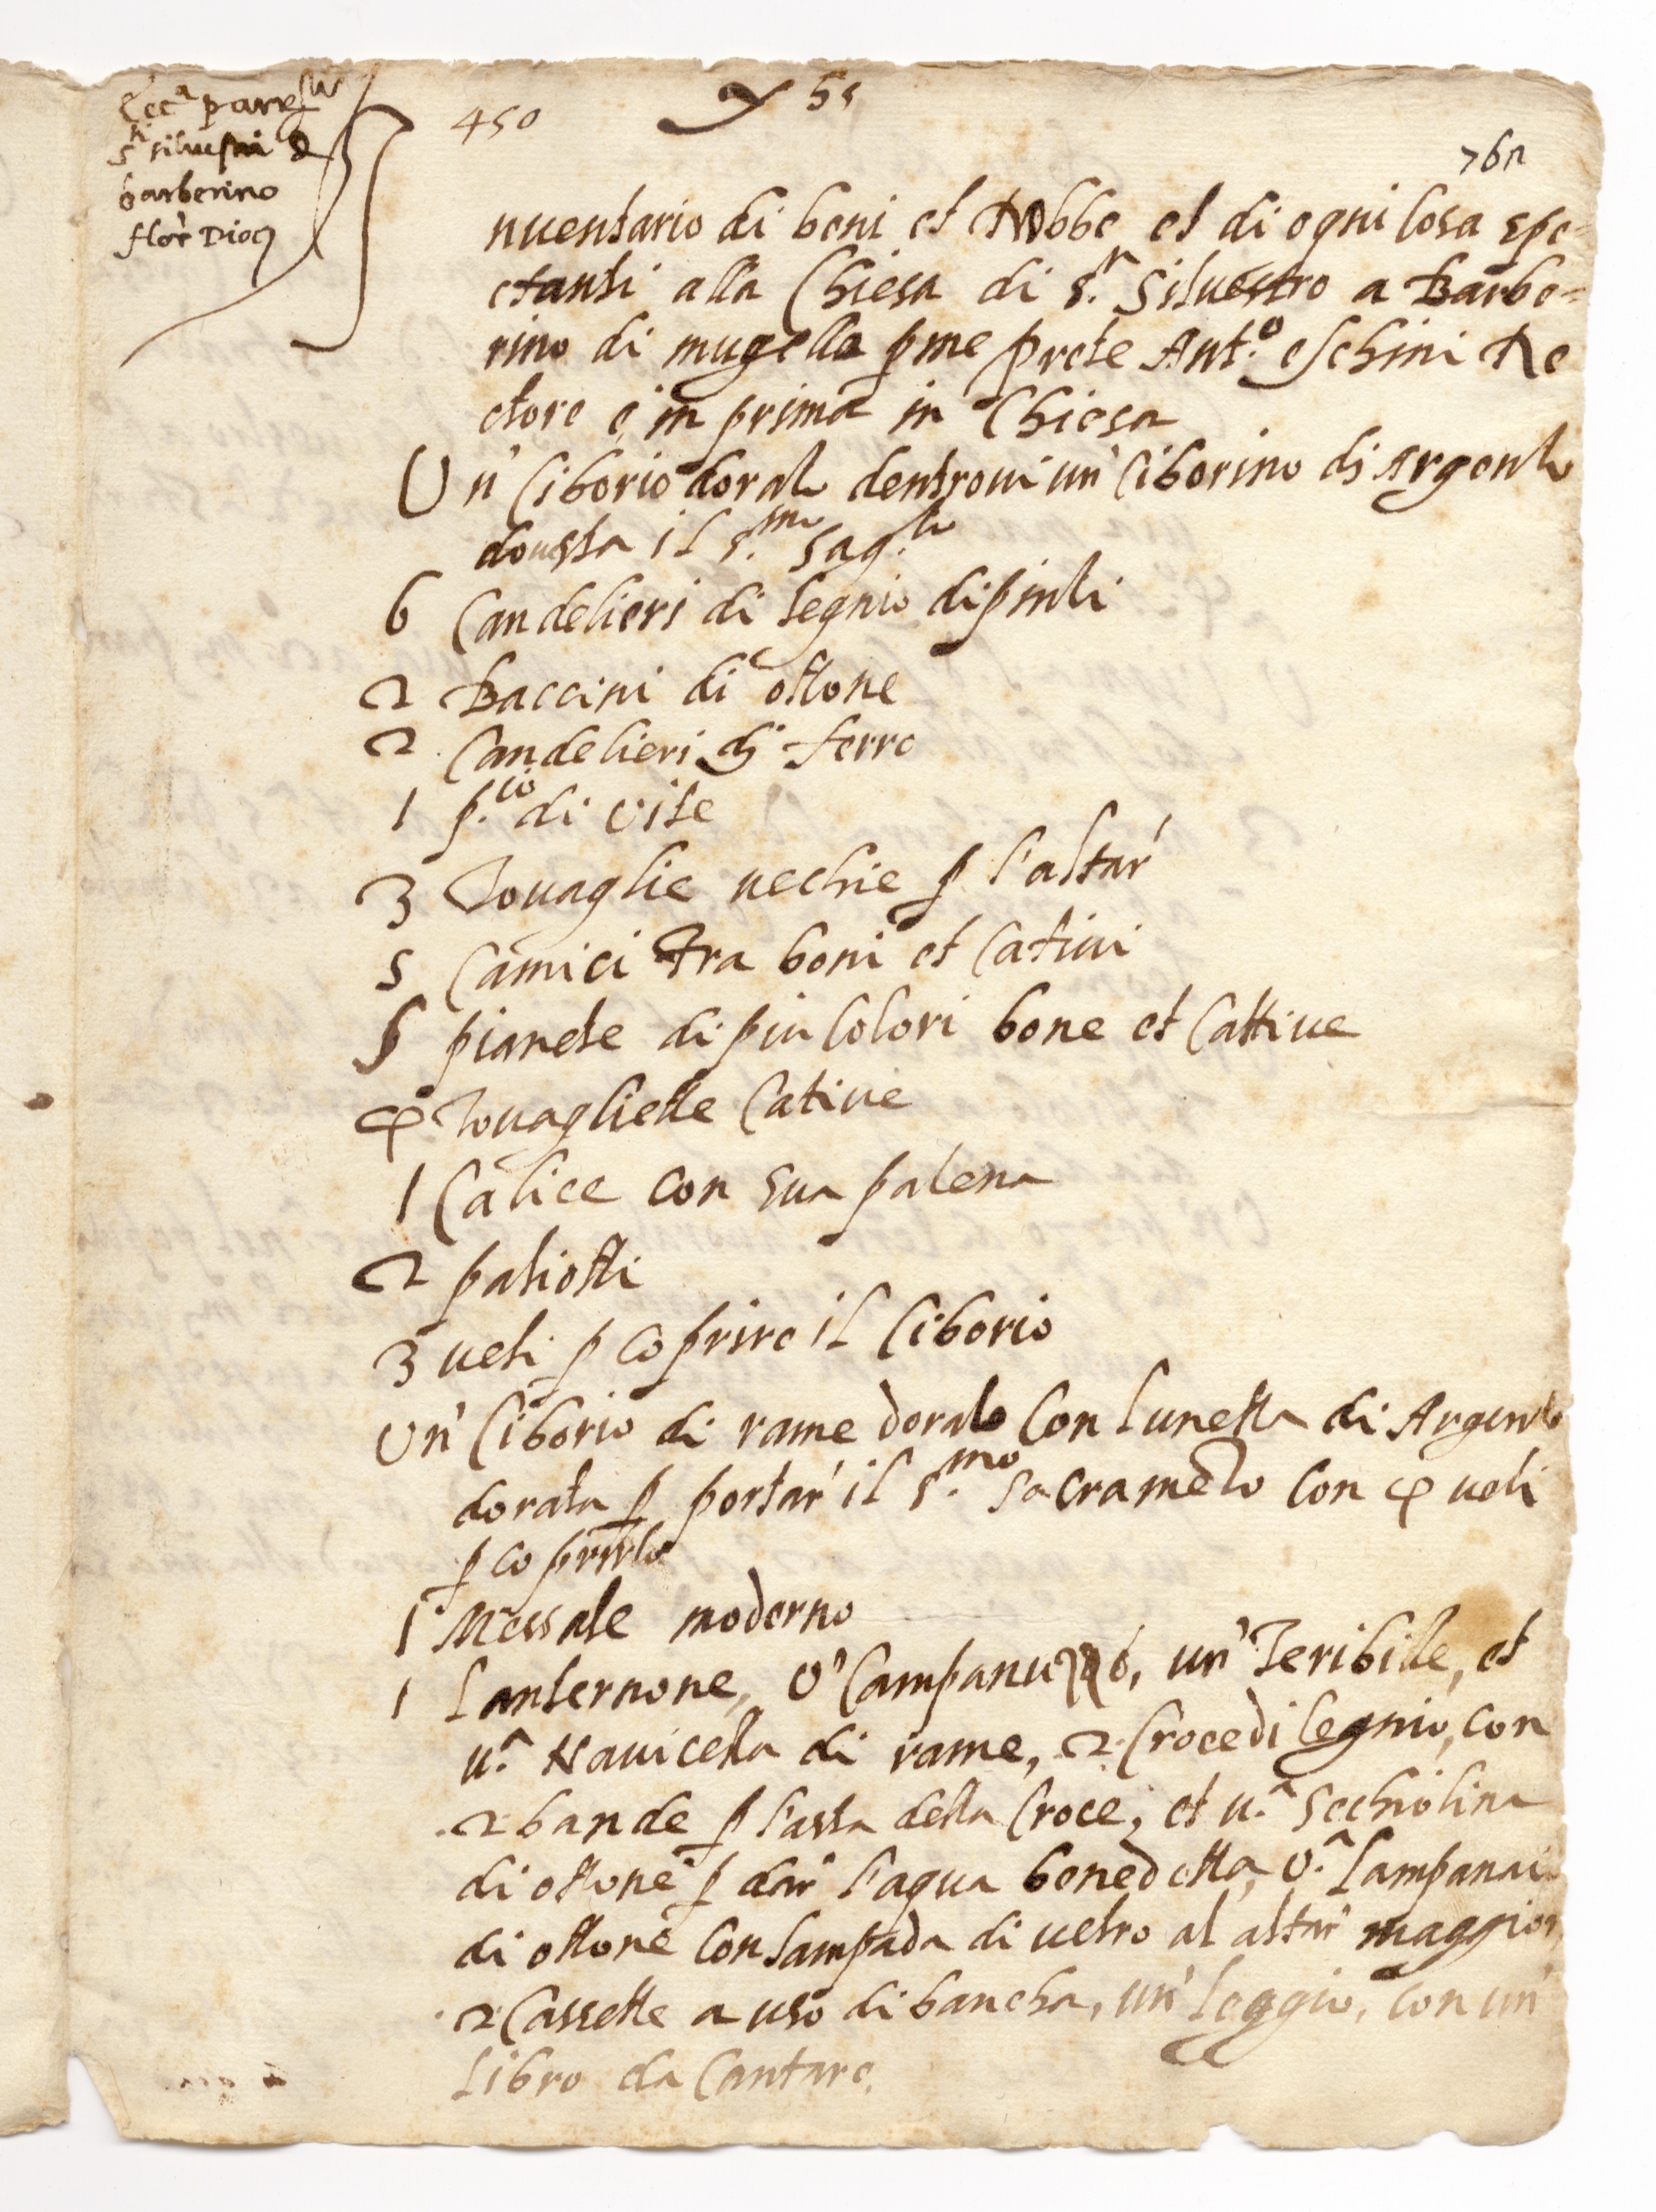 Ecc.a par
S.ti siluestri d
barberino
flor Dioc
450
y 55
767
nuentario di beni et Robbe et di ogni Cosa spe=
ctanti alla Chiesa di S.n Siluestro a Barbe=
rino di mugello p me prete Ant.o eschini Re
ctore e in prima in Chiesa
Un' Ciborio dorato dentroui un' Ciborino di Argento
douesta il S.mo Sag.to
6 Candelieri di legnio dipinti
2 Baccini di ottone
2 Candelieri di ferro
1 p.cio di uite
3 Touaglie uechie p l'altar'
5 Camici tra boni et Catiui
5 pianete di piu Colori bone et Cattiue
4 Touagliette Catiue
1 Calice con sua patena
2 paliotti
3 ueli p coprire il Ciborio
Un' Ciborio di rame dorato Con lunetta di Argento
dorata p portar' il S.mo Sacrameto Con 4 ueli
p coprirlo
1 Messale moderno
1 Lanternone, U' Campanuzzo, un' Teribille, et
u.a Nauicella di rame, 2 Croce di legnio, con
2 bande p l'asta della Croce, et u.a Sechiolina
di ottone p dar l'aqua benedetta, U.a Lampanai
di ottone Con lampada di uetro al altar maggior
2 Cassette a uso di bancha, un' leggio, Con un'
Libro da Cantare.